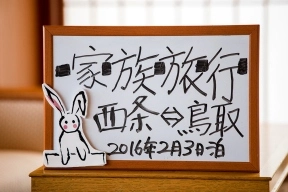 家族旅行
西条⇔鳥取
2016年2月3日泊